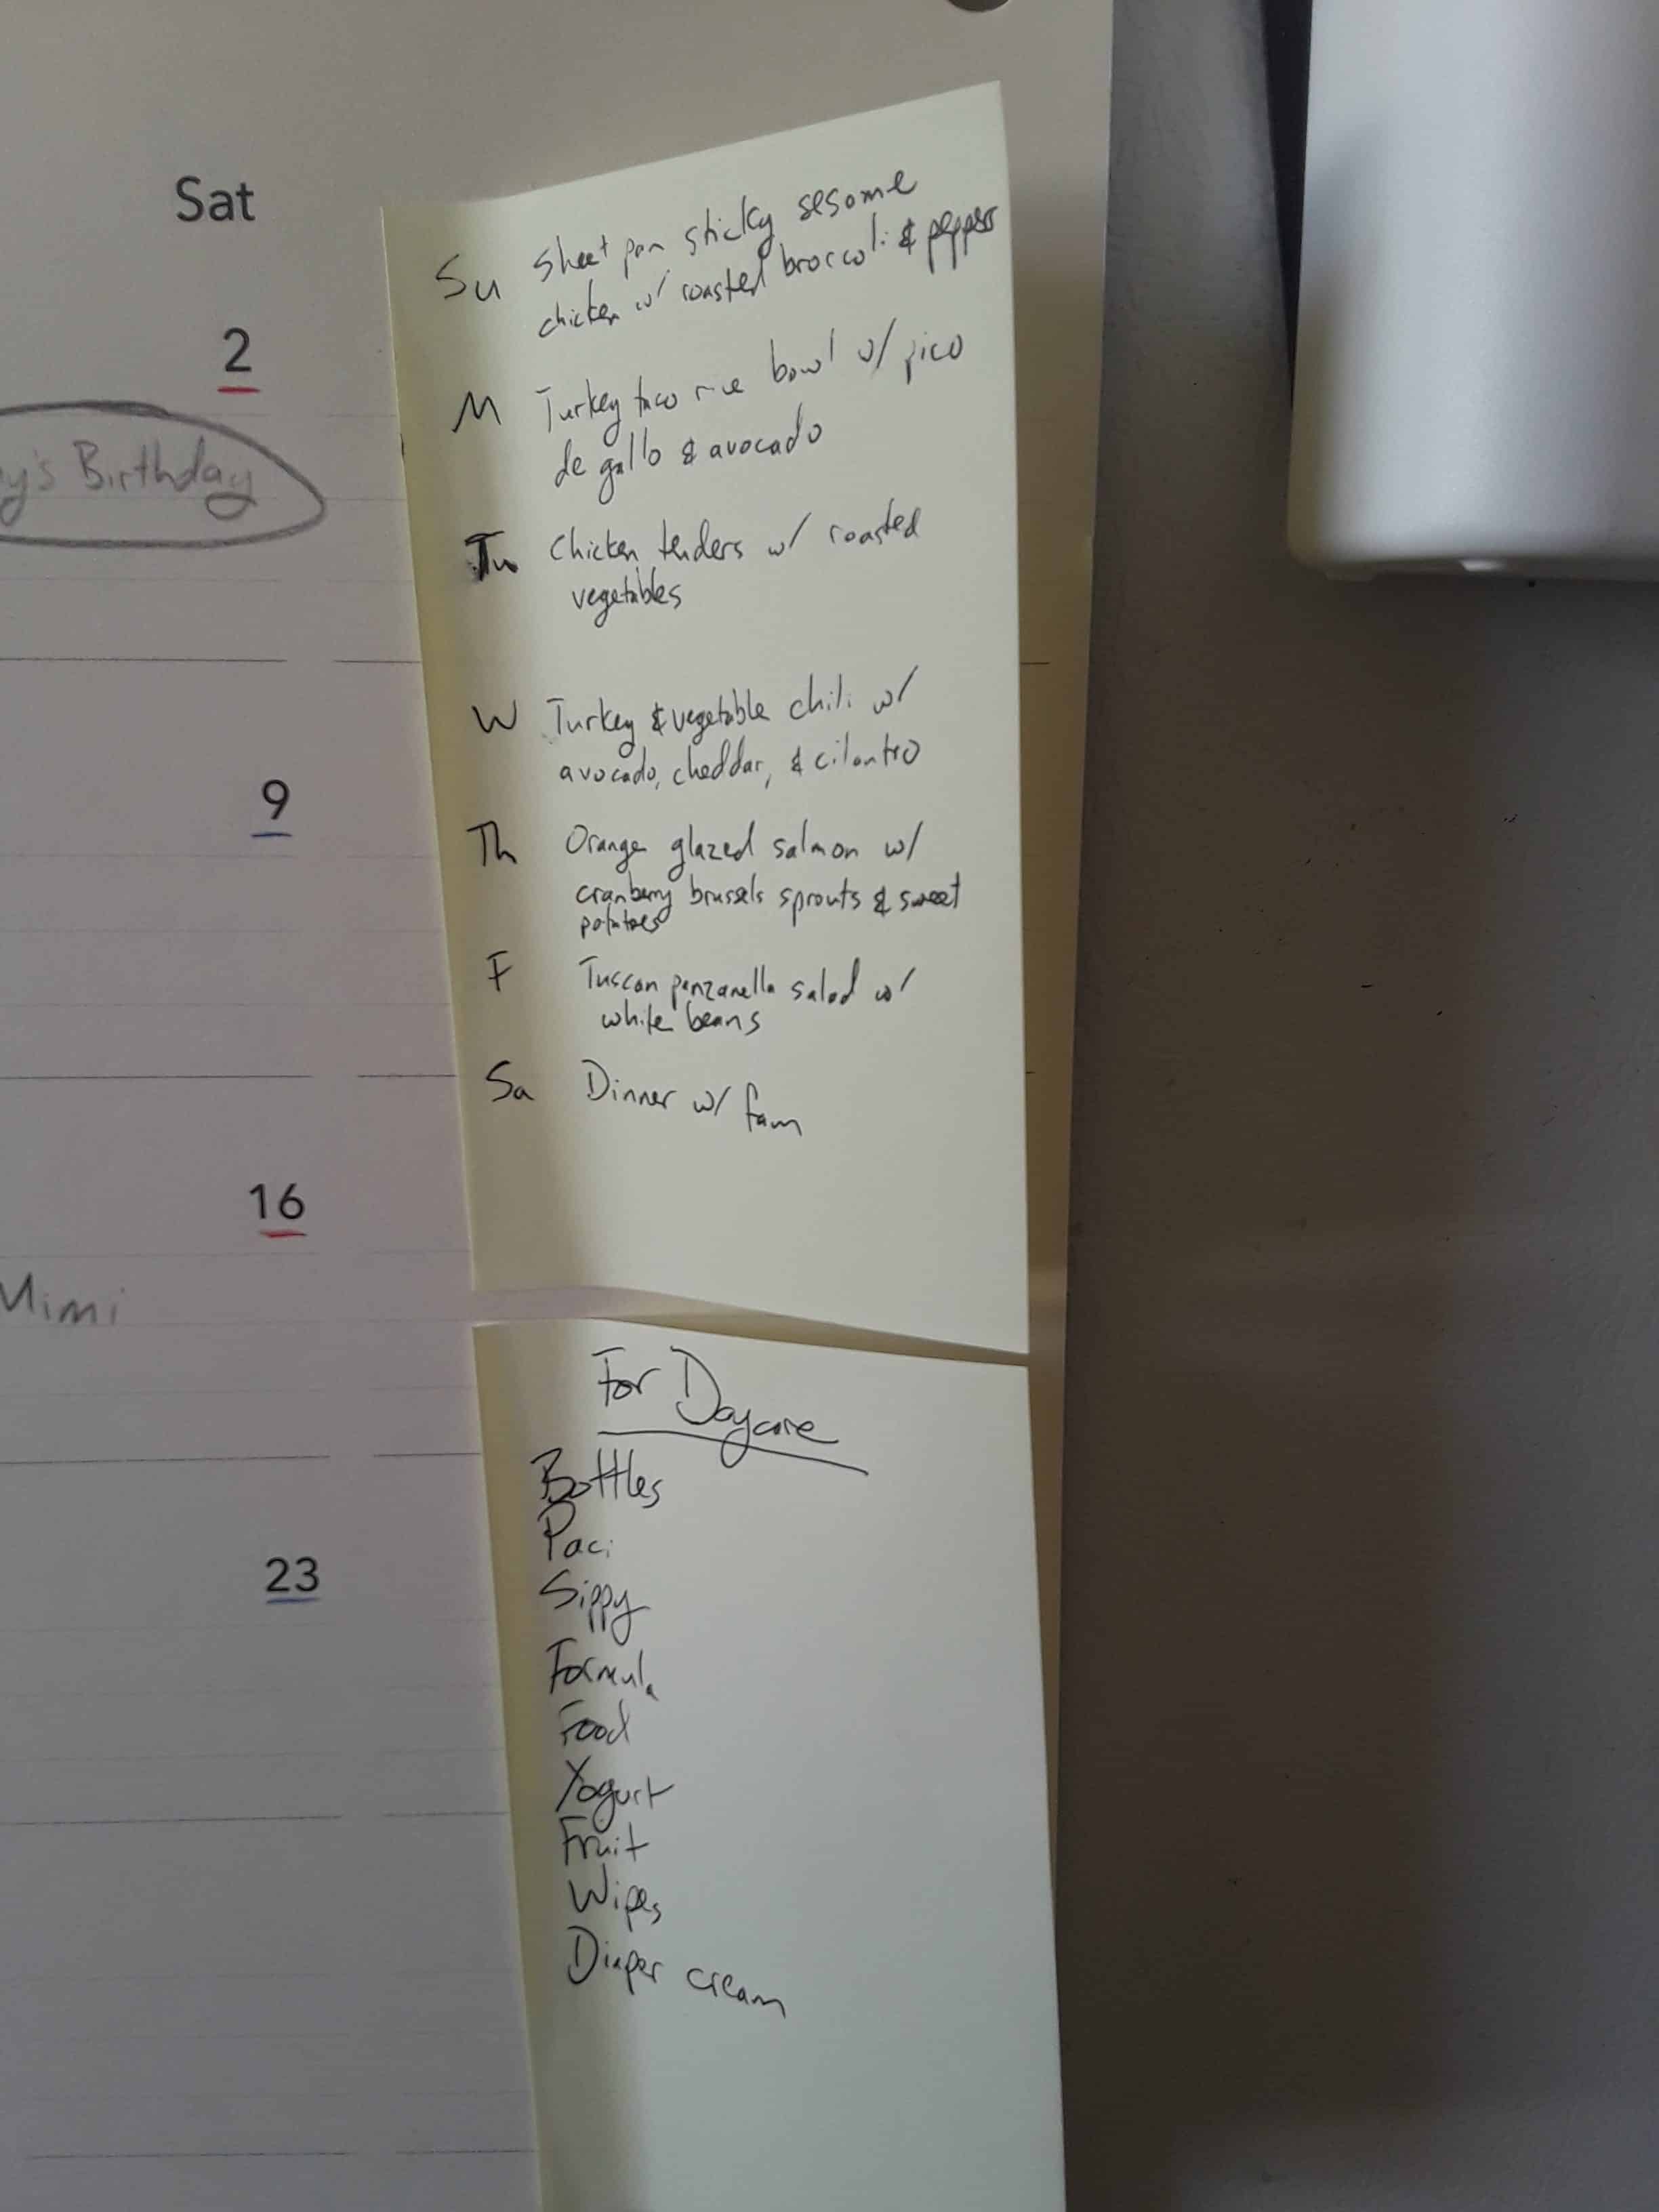 Sat
2
y's Birthday
9
16
Mimi
23
Su Sheet pan sticky sesame
chicken w/ roasted broccoli & peppers
M Turkey taco rice bowl w/ pico
de gallo & avocado
Tu Chicken tenders w/ roasted
vegetables
W Turkey & vegetable chili w/
avocado, cheddar, & cilantro
Th Orange glazed salmon w/
cranberry brussels sprouts & sweet
potatoes
F Tuscan panzanella salad w/
white beans
Sa Dinner w/ fam
For Daycare
Bottles
Paci
Sippy
Formula
Food
Yogurt
Fruit
Wipes
Diaper cream